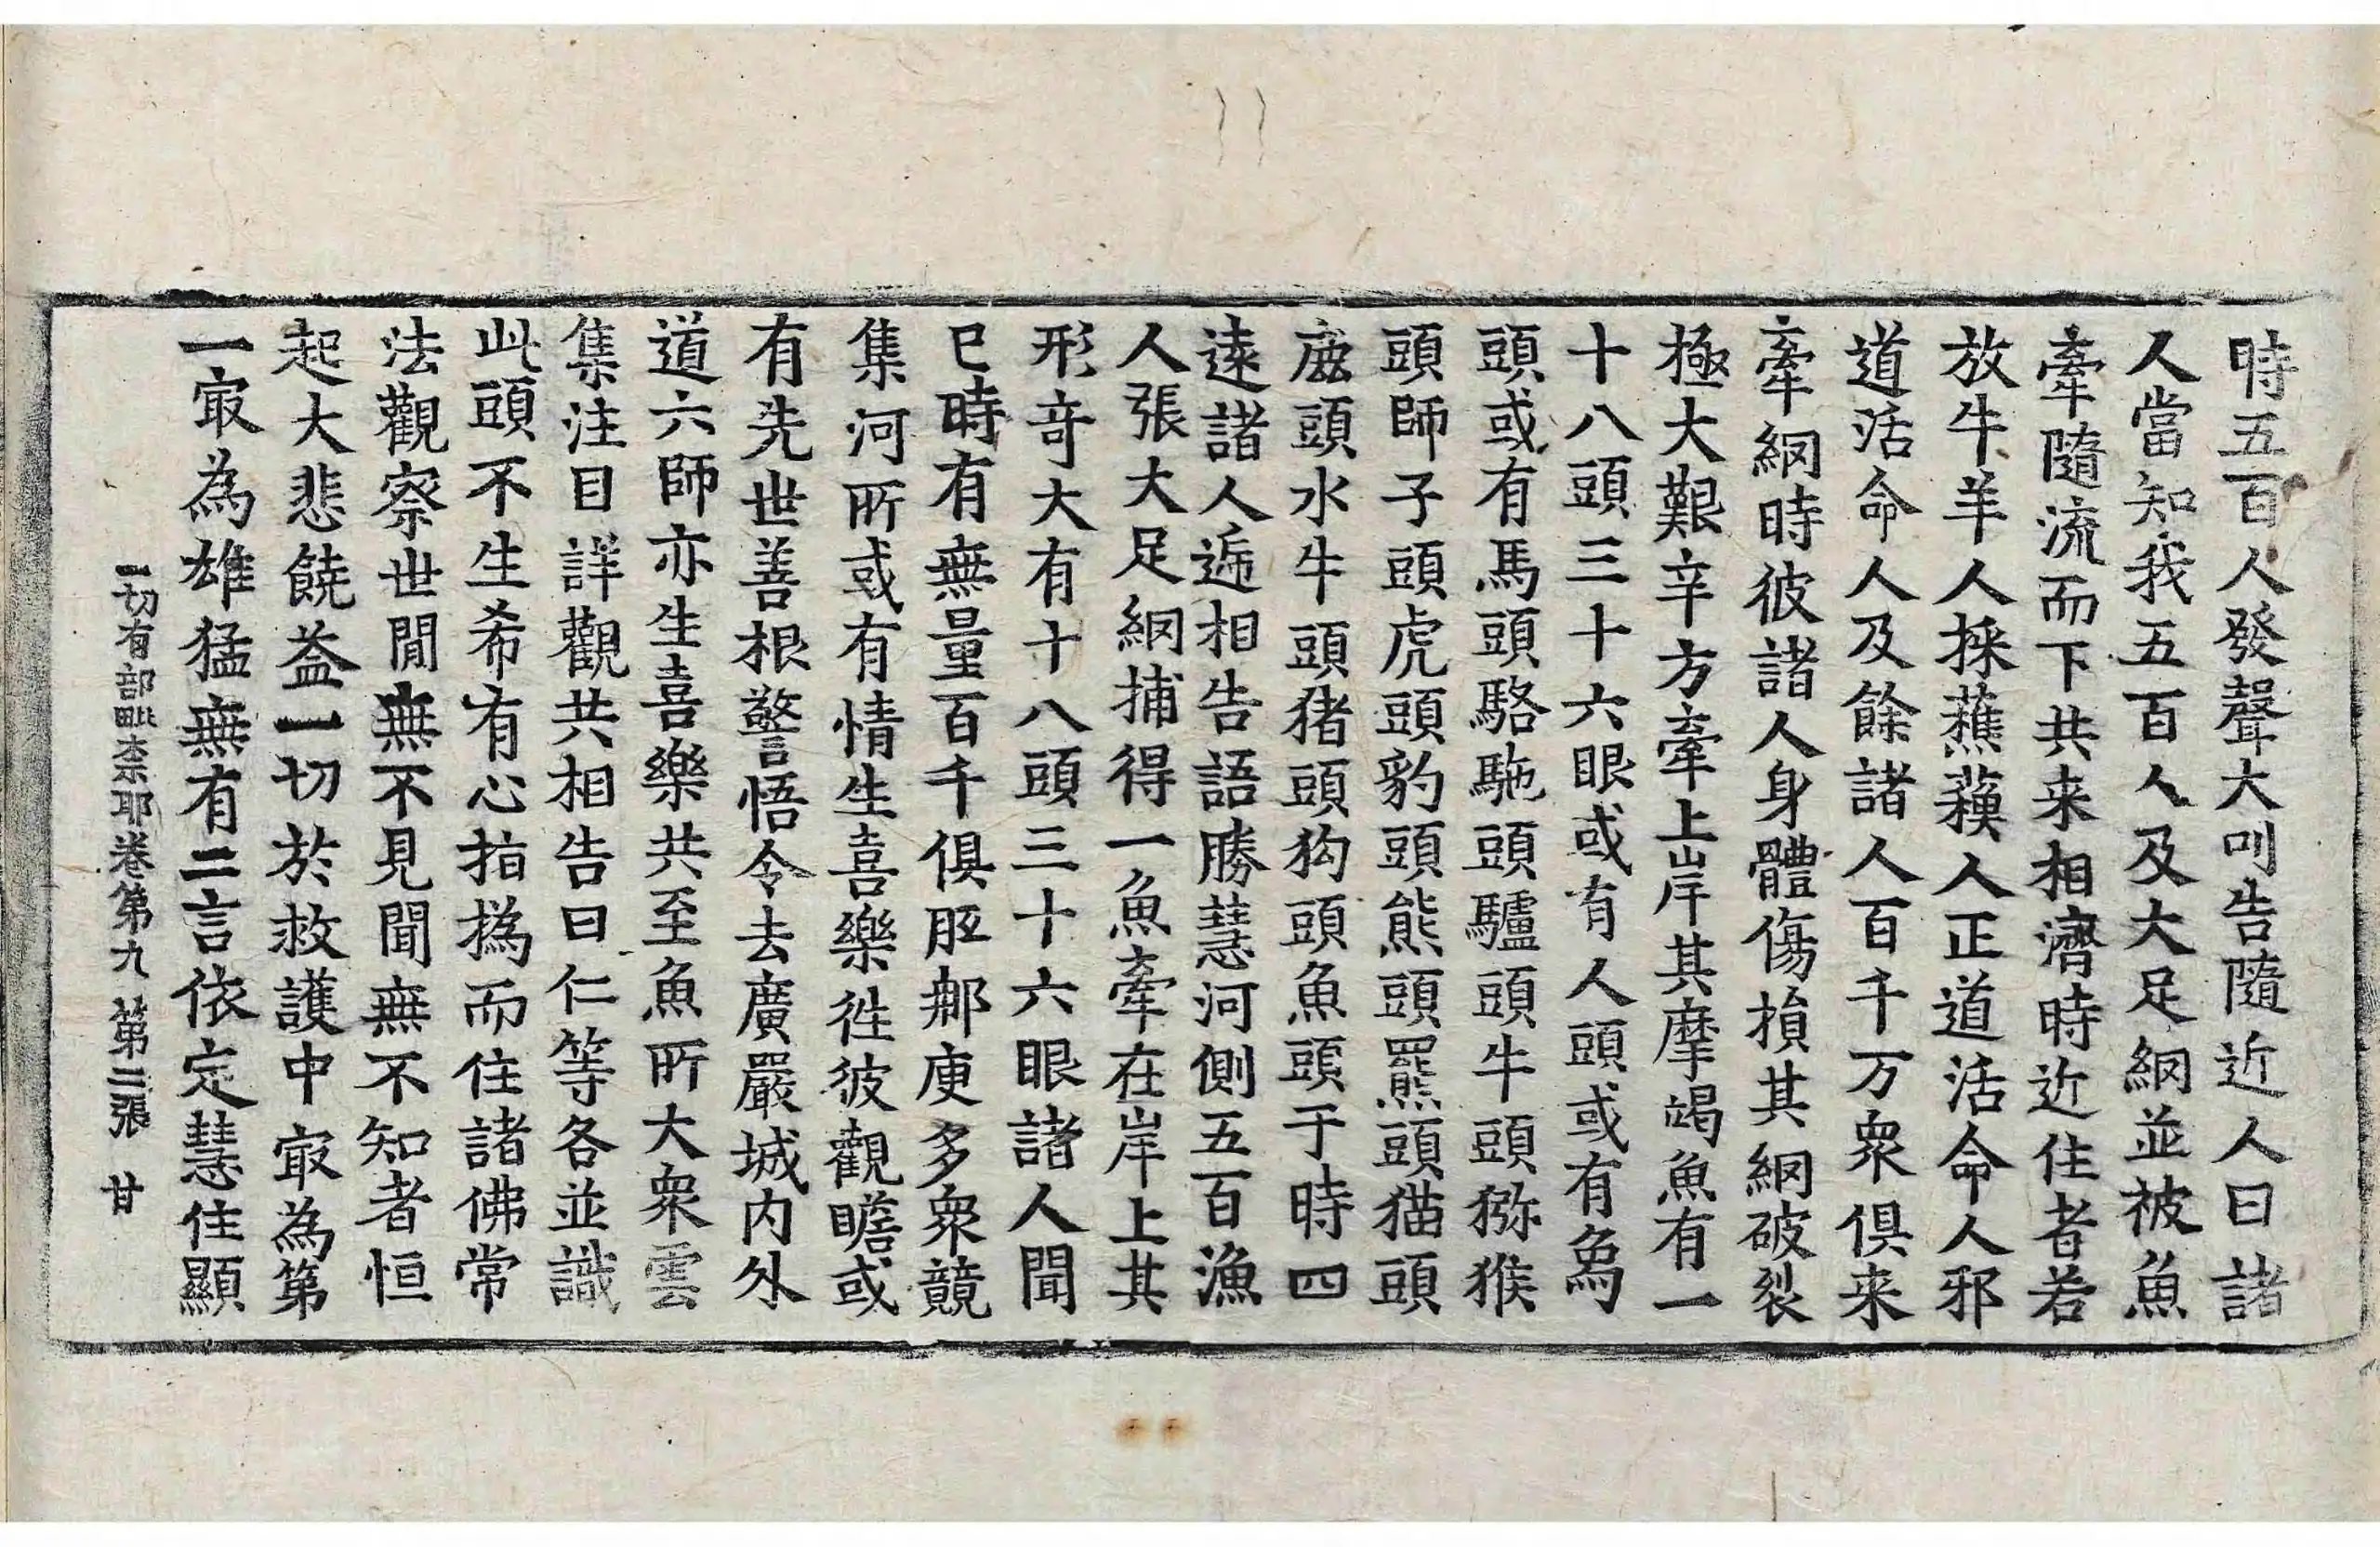 時五百人發聲大叫告隨近人曰諸
人當知我五百人及大足網並被魚
牽隨流而下共来相濟時近住者若
放牛羊人採蕉蘓人正道活命人邪
道活命人及餘諸人百千万衆俱来
牽網時彼諸人身體傷損其網破裂
極大艱辛方牽上岸其摩竭魚有一
十八頭三十六眼或有人頭或有爲
頭或有馬頭駱駞頭驢頭牛頭獼猴
頭師子頭虎頭豹頭熊頭羆頭猫頭
鹿頭水牛頭猪頭狗頭魚頭于時四
遠諸人遞相告語勝慧河側五百漁
人張大足網捕得一魚牽在岸上其
形竒大有十八頭三十六眼諸人聞
已時有無量百千俱胝那庾多衆競
集河所或有情生喜樂徃彼觀瞻或
有先世善根警悟令去廣嚴城内外
道六師亦生喜樂共至魚所大衆雲
集注目詳觀共相告曰仁等各並識
此頭不生希有心指撝而住諸佛常
法觀察世間無不見聞無不知者恒
起大悲饒益一切於救護中㝡為第
一㝡為雄猛無有二言依定慧住顯
一切有部毗柰耶卷第九 第二張 甘